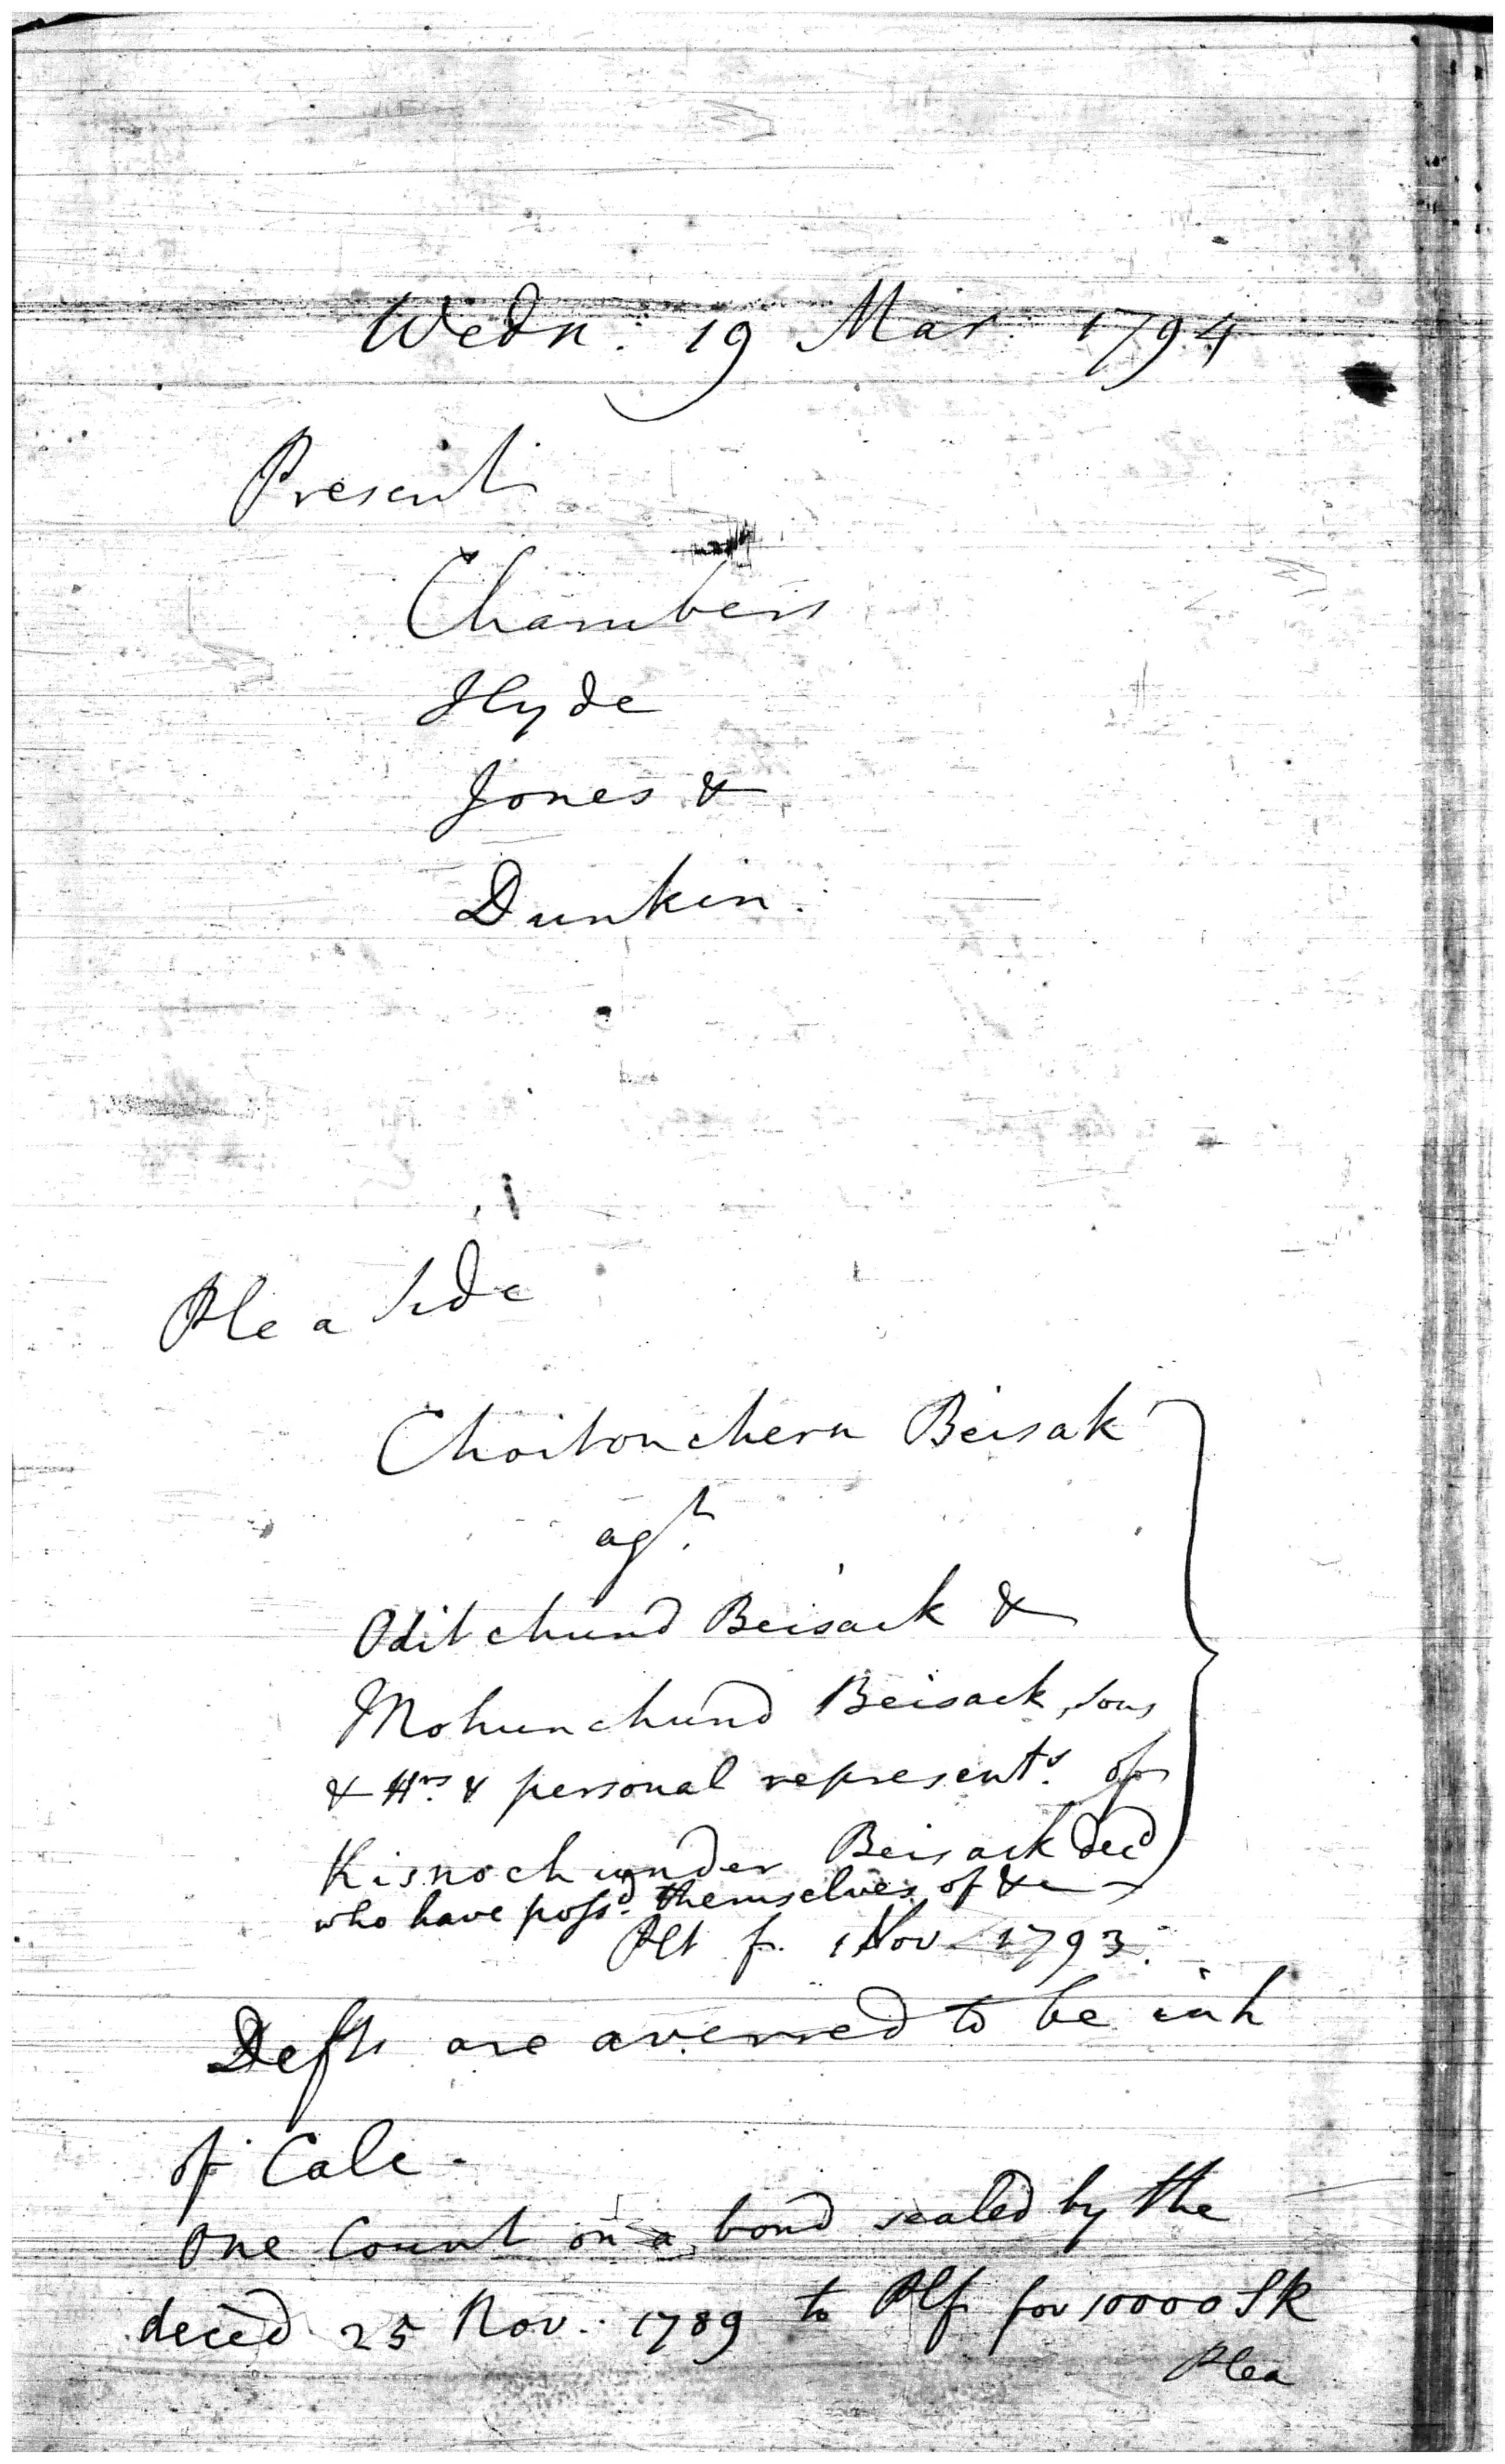 Wedn: 19 Mar. 1794
Present
Chambers
Hyde
Jones &
Dunkin.
Plea Side
Choitonchern Beisak
agt.
Oditchund Beisack &
Mohunchund Beisack, sons
& Hrs. & personal represents. of
Kisnochunder Beisack decd
who have possd. themselves of &c
Plt f. 1 Nov. 1793.
Defts are averred to be inh
of Calc.
One Count on a bond sealed by the
deced 25 Nov. 1789 to Plf for 10000 SR
Plea